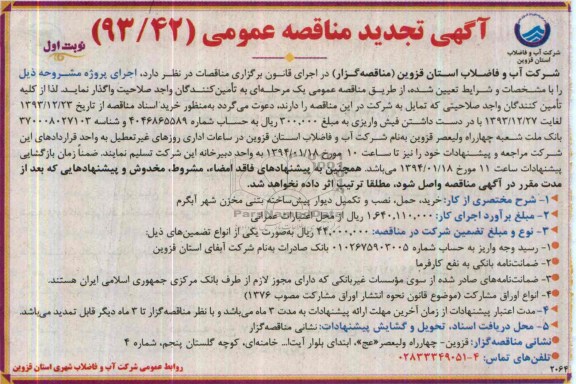 آگهی تجدید مناقصه عمومی (۹۳/۴۲)
نوبت اول
شرکت آب و فاضلاب
استان قزوین
شرکت آب و فاضلاب استان قزوین (مناقصه‌گزار) در اجرای قانون برگزاری مناقصات در نظر دارد، اجرای پروژه مشروحه ذیل
را با مشخصات و شرایط تعیین شده، از طریق مناقصه عمومی یک مرحله‌ای به تأمین‌کنندگان واجد صلاحیت واگذار نماید. لذا از کلیه
تأمین کنندگان واجد صلاحیتی که تمایل به شرکت در این مناقصه را دارند، دعوت می‌گردد به‌منظور خرید اسناد مناقصه از تاریخ ۱۳۹۳/۱۲/۲۳
لغایت ۱۳۹۳/۱۲/۲۷ با در دست داشتن فیش واریزی به مبلغ ۳۰۰،۰۰۰ ریال به حساب شماره ۴۰۴۶۸۶۵۵۸۹ و شناسه ۳۷۰۰۰۸۰۲۷۱۰۳
بانک ملت شعبه چهارراه ولیعصر قزوین به‌نام شرکت آب و فاضلاب استان قزوین در ساعات اداری روزهای غیرتعطیل به واحد قراردادهای این
شرکت مراجعه و پیشنهادات خود را نیز تا ساعت ۱۰ مورخ ۱۳۹۴/۰۱/۱۸ به واحد دبیرخانه این شرکت تسلیم نمایند. ضمناً زمان بازگشایی
پیشنهادات ساعت ۱۱ مورخ ۱۳۹۴/۰۱/۱۸ می‌باشد. همچنین به پیشنهادهای فاقد امضاء، مشروط، مخدوش و پیشنهادهایی که بعد از
مدت مقرر در آگهی مناقصه واصل شود، مطلقا ترتیب اثر داده نخواهد شد.
۱- شرح مختصری از کار: خرید، حمل، نصب و تکمیل دیوار پیش‌ساخته بتنی مخزن شهر آبگرم
۲- مبلغ برآورد اجرای کار: ۱،۶۴۰،۱۱۰،۰۰۰ ریال از محل اعتبارات عمرانی
۳- نوع و مبلغ تضمین شرکت در مناقصه: ۴۴،۰۰۰،۰۰۰ ریال به‌صورت یکی از انواع تضمین‌های ذیل:
۱- رسید وجه واریز به حساب شماره ۰۱۰۲۶۷۵۹۰۳۰۰۵ بانک صادرات به‌نام شرکت آبفای استان قزوین
۲- ضمانت‌نامه بانکی به نفع کارفرما
۳- ضمانت‌نامه‌های صادر شده از سوی مؤسسات غیربانکی که دارای مجوز لازم از طرف بانک مرکزی جمهوری اسلامی ایران هستند.
۴- انواع اوراق مشارکت (موضوع قانون نحوه انتشار اوراق مشارکت مصوب ۱۳۷۶)
۴- مدت اعتبار پیشنهادات از زمان آخرین مهلت ارائه پیشنهادات به مدت ۳ ماه می‌باشد و با نظر مناقصه‌گزار تا ۳ ماه دیگر قابل تمدید می‌باشد.
۵- محل دریافت اسناد، تحویل و گشایش پیشنهادات: نشانی مناقصه‌گزار
نشانی مناقصه‌گزار: قزوین- چهارراه ولیعصر«عج»، ابتدای بلوار آیت‌ا... خامنه‌ای، کوچه گلستان پنجم، شماره ۴
تلفن‌های تماس: ۴-۰۲۸۳۳۳۴۹۰۵۱
روابط عمومی شرکت آب و فاضلاب شهری استان قزوین
۲۰۶۴